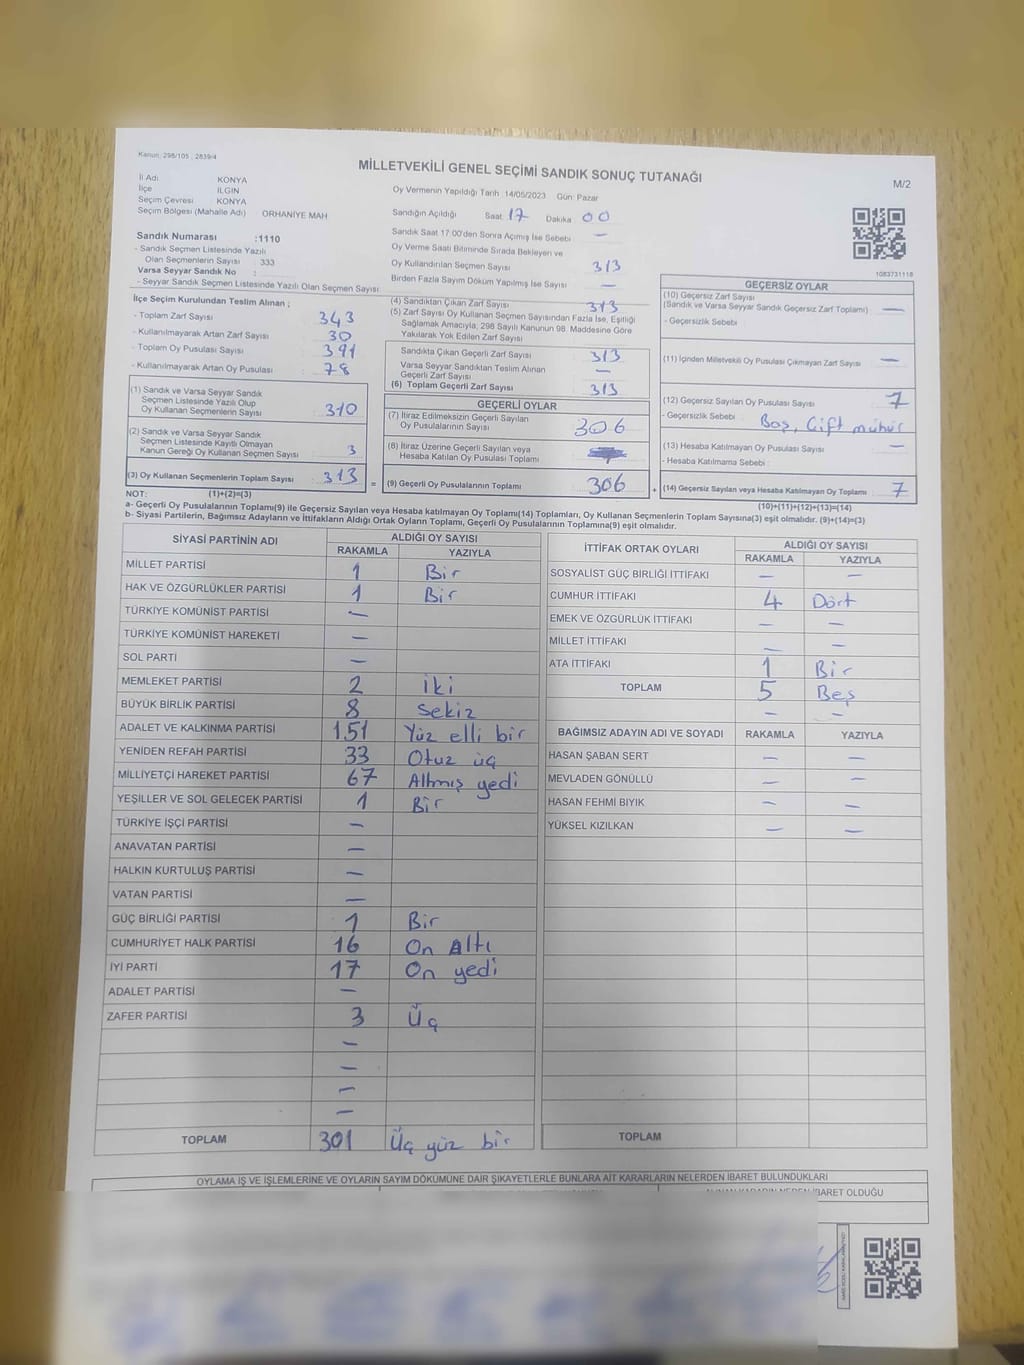 Kanun: 298/105 ; 2839/4
MİLLETVEKİLİ GENEL SEÇİMİ SANDIK SONUÇ TUTANAĞI
M/2
İl Adı KONYA
İlçe ILGIN
Seçim Çevresi KONYA
Seçim Bölgesi (Mahalle Adı) ORHANİYE MAH
Sandık Numarası :1110
- Sandık Seçmen Listesinde Yazılı
Olan Seçmenlerin Sayısı : 333
Varsa Seyyar Sandık No :
- Seyyar Sandık Seçmen Listesinde Yazılı Olan Seçmen Sayısı
Oy Vermenin Yapıldığı Tarih 14/05/2023 Gün: Pazar
Sandığın Açıldığı Saat 17 Dakika 00
Sandık Saat 17:00'den Sonra Açımış İse Sebebi —
Oy Verme Saati Bitiminde Sırada Bekleyen ve
Oy Kullandırılan Seçmen Sayısı 313
Birden Fazla Sayım Döküm Yapılmış İse Sayısı —
1083731118
İlçe Seçim Kurulundan Teslim Alınan ;
- Toplam Zarf Sayısı 343
- Kullanılmayarak Artan Zarf Sayısı 30
- Toplam Oy Pusulası Sayısı 391
- Kullanılmayarak Artan Oy Pusulası 78
(1) Sandık ve Varsa Seyyar Sandık
Seçmen Listesinde Yazılı Olup
Oy Kullanan Seçmenlerin Sayısı 310
(2) Sandık ve Varsa Seyyar Sandık
Seçmen Listesinde Kayıtlı Olmayan
Kanun Gereği Oy Kullanan Seçmen Sayısı 3
(3) Oy Kullanan Seçmenlerin Toplam Sayısı 313 =
(4) Sandıktan Çıkan Zarf Sayısı 313
(5) Zarf Sayısı Oy Kullanan Seçmen Sayısından Fazla İse, Eşitliği
Sağlamak Amacıyla, 298 Sayılı Kanunun 98. Maddesine Göre
Yakılarak Yok Edilen Zarf Sayısı
Sandıkta Çıkan Geçerli Zarf Sayısı 313
Varsa Seyyar Sandıktan Teslim Alınan
Geçerli Zarf Sayısı —
(6) Toplam Geçerli Zarf Sayısı 313
GEÇERLİ OYLAR
(7) İtiraz Edilmeksizin Geçerli Sayılan
Oy Pusulalarının Sayısı 306
(8) İtiraz Üzerine Geçerli Sayılan veya
Hesaba Katılan Oy Pusulası Toplamı
(9) Geçerli Oy Pusulalarının Toplamı 306 +
GEÇERSİZ OYLAR
(10) Geçersiz Zarf Sayısı
(Sandık ve Varsa Seyyar Sandık Geçersiz Zarf Toplamı) —
- Geçersizlik Sebebi :
(11) İçinden Milletvekili Oy Pusulası Çıkmayan Zarf Sayısı —
(12) Geçersiz Sayılan Oy Pusulası Sayısı 7
- Geçersizlik Sebebi : Boş, Çift mühür
(13) Hesaba Katılmayan Oy Pusulası Sayısı —
- Hesaba Katılmama Sebebi :
(14) Geçersiz Sayılan veya Hesaba Katılmayan Oy Toplamı 7
NOT: (1)+(2)=(3)
(10)+(11)+(12)+(13)=(14)
a- Geçerli Oy Pusulalarının Toplamı(9) ile Geçersiz Sayılan veya Hesaba katılmayan Oy Toplamı(14) Toplamları, Oy Kullanan Seçmenlerin Toplam Sayısına(3) eşit olmalıdır. (9)+(14)=(3)
b- Siyasi Partilerin, Bağımsız Adayların ve İttifakların Aldığı Ortak Oyların Toplamı, Geçerli Oy Pusulalarının Toplamına(9) eşit olmalıdır.
SİYASİ PARTİNİN ADI ALDIĞI OY SAYISI
RAKAMLA YAZIYLA
MİLLET PARTİSİ 1 Bir
HAK VE ÖZGÜRLÜKLER PARTİSİ 1 Bir
TÜRKİYE KOMÜNİST PARTİSİ —
TÜRKİYE KOMÜNİST HAREKETİ —
SOL PARTİ —
MEMLEKET PARTİSİ 2 İki
BÜYÜK BİRLİK PARTİSİ 8 Sekiz
ADALET VE KALKINMA PARTİSİ 151 Yüz elli bir
YENİDEN REFAH PARTİSİ 33 Otuz üç
MİLLİYETÇİ HAREKET PARTİSİ 67 Altmış yedi
YEŞİLLER VE SOL GELECEK PARTİSİ 1 Bir
TÜRKİYE İŞÇİ PARTİSİ —
ANAVATAN PARTİSİ —
HALKIN KURTULUŞ PARTİSİ —
VATAN PARTİSİ —
GÜÇ BİRLİĞİ PARTİSİ 1 Bir
CUMHURİYET HALK PARTİSİ 16 On Altı
İYİ PARTİ 17 On yedi
ADALET PARTİSİ —
ZAFER PARTİSİ 3 Üç
—
—
—
—
TOPLAM 301 Üç yüz bir
İTTİFAK ORTAK OYLARI ALDIĞI OY SAYISI
RAKAMLA YAZIYLA
SOSYALİST GÜÇ BİRLİĞİ İTTİFAKI — —
CUMHUR İTTİFAKI 4 Dört
EMEK VE ÖZGÜRLÜK İTTİFAKI — —
MİLLET İTTİFAKI — —
ATA İTTİFAKI 1 Bir
TOPLAM 5 Beş
— —
BAĞIMSIZ ADAYIN ADI VE SOYADI RAKAMLA YAZIYLA
HASAN ŞABAN SERT — —
MEVLADEN GÖNÜLLÜ — —
HASAN FEHMİ BIYIK — —
YÜKSEL KIZILKAN — —
TOPLAM
OYLAMA İŞ VE İŞLEMLERİNE VE OYLARIN SAYIM DÖKÜMÜNE DAİR ŞIKAYETLERLE BUNLARA AİT KARARLARIN NELERDEN İBARET BULUNDUKLARI
İBARET OLDUĞU